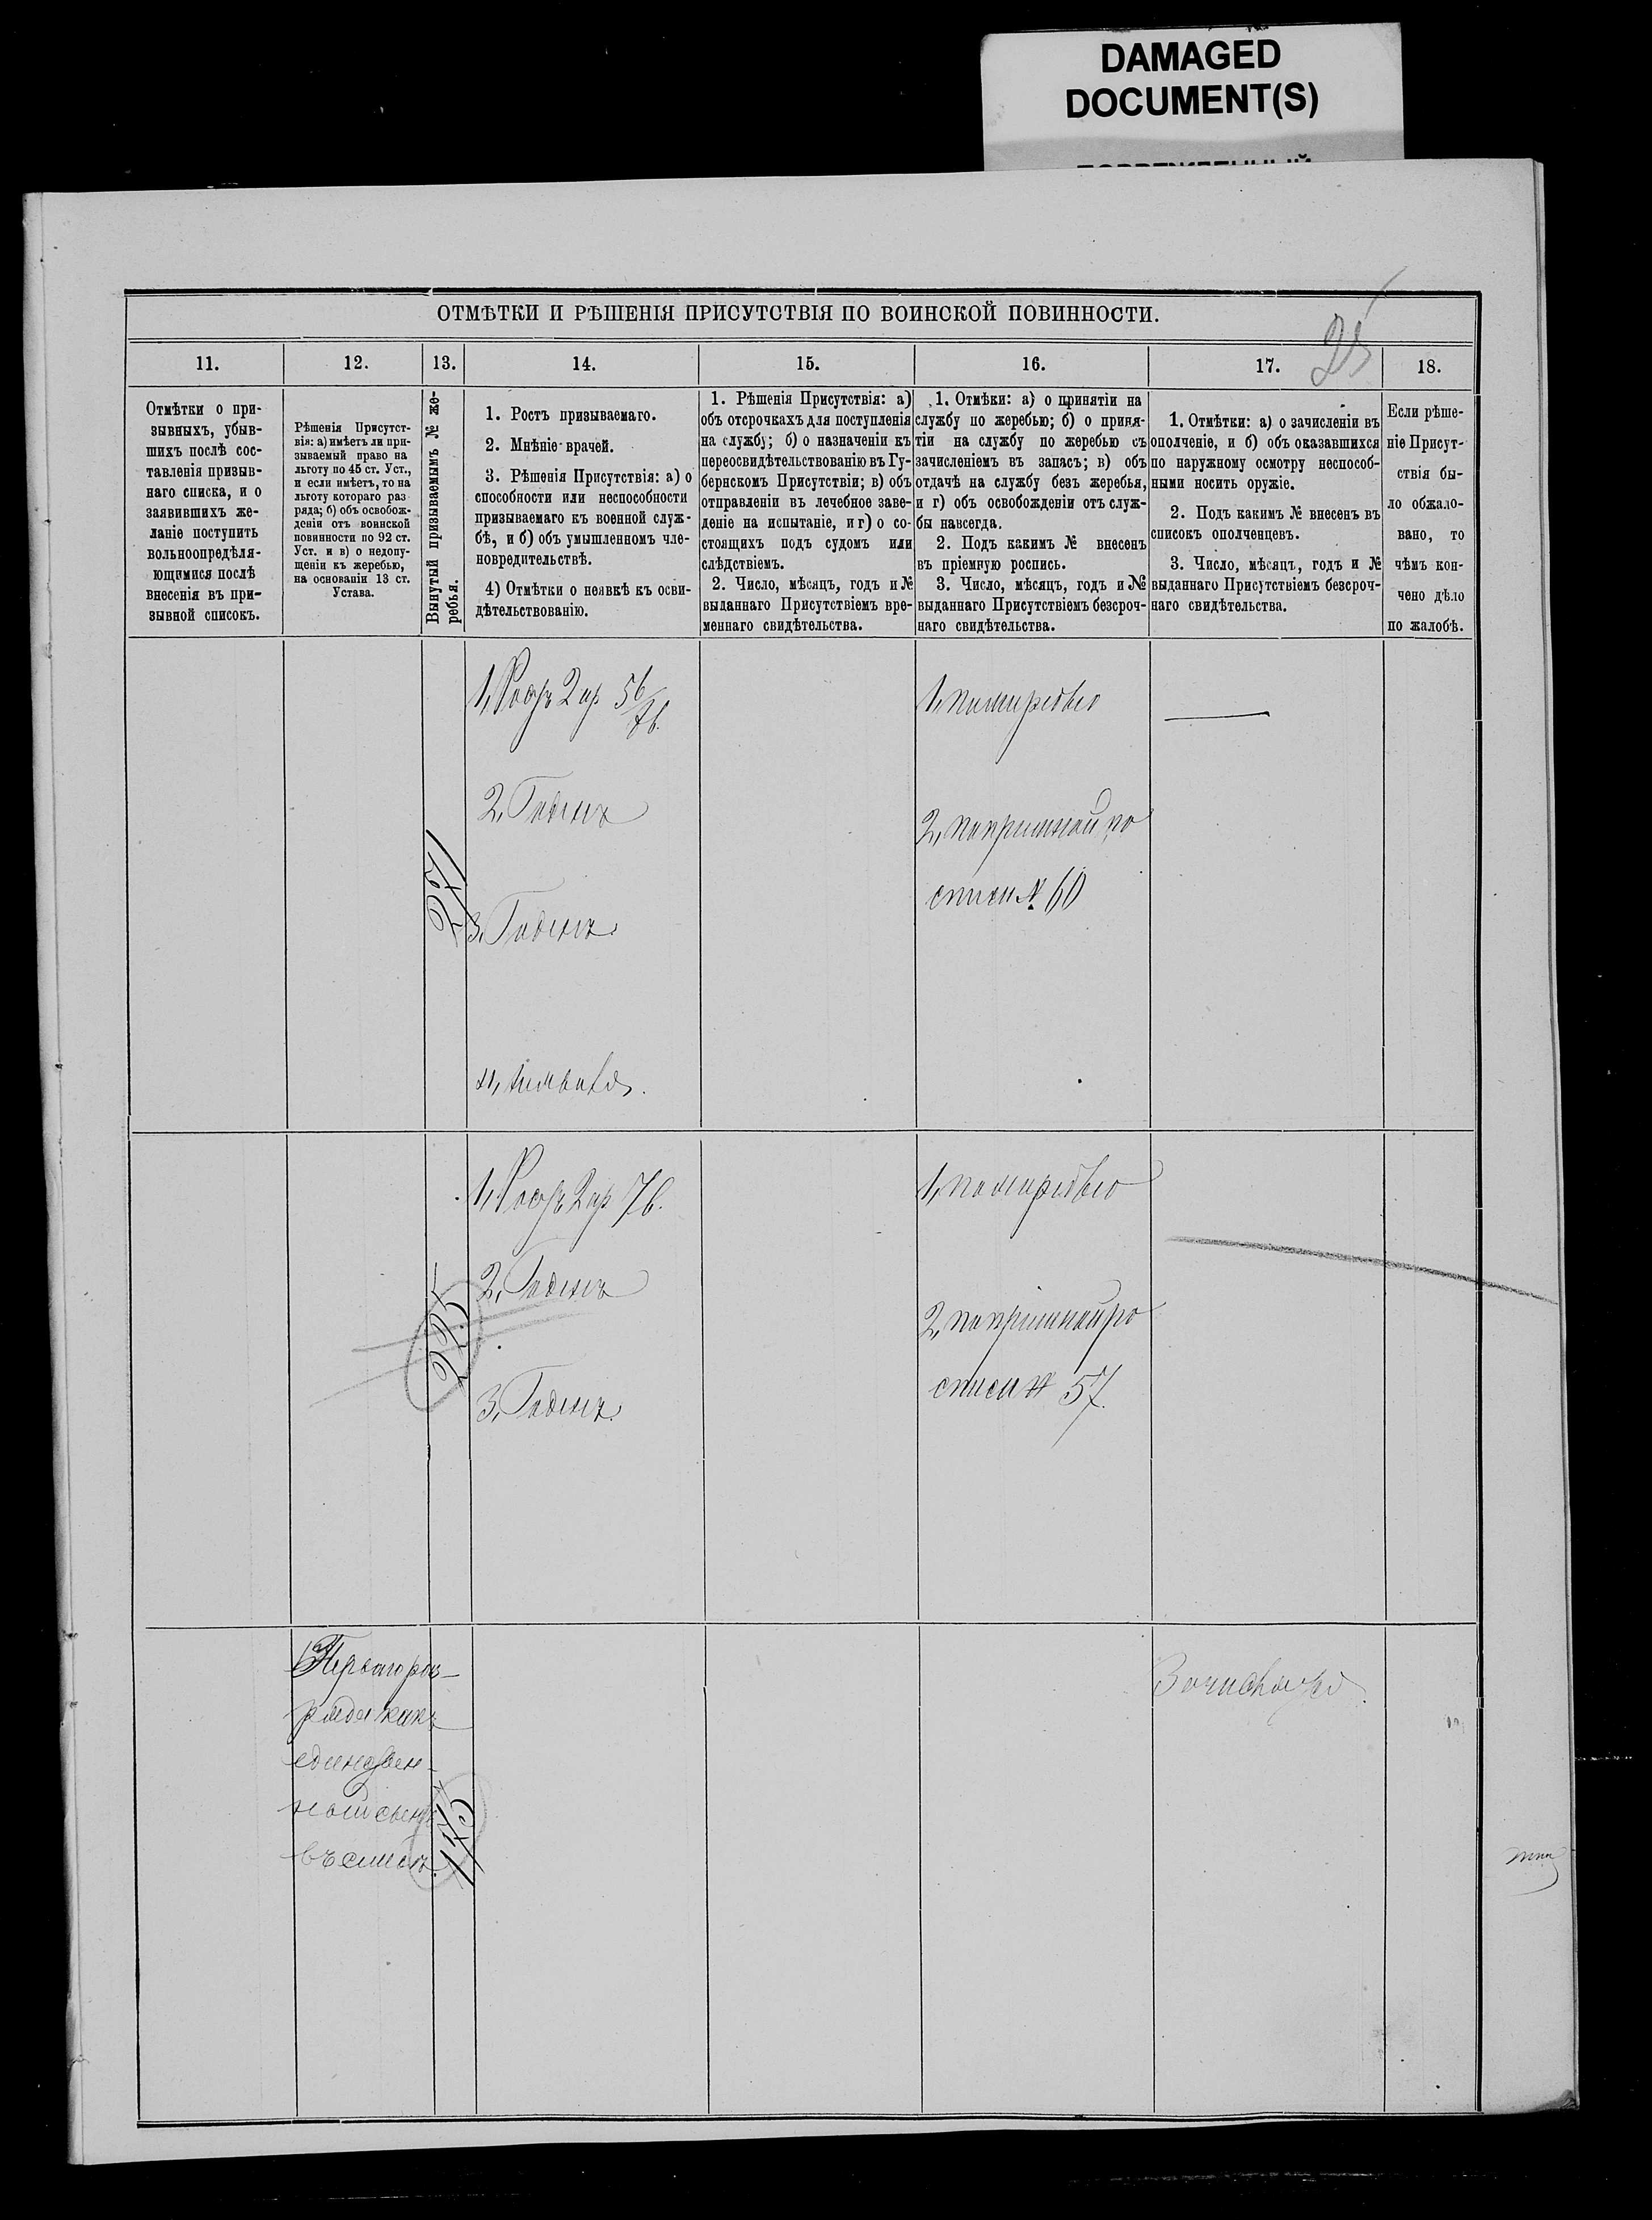 DAMAGED
DOCUMENT(S)
25
ОТМѢТКИ И РѢШЕНІЯ ПРИСУТСТВІЯ ПО ВОИНСКОЙ ПОВИННОСТИ.
11.
12.
13.
14.
15.
16.
17.
18.
Отмѣтки о при-
зывныхъ, убыв-
шихъ послѣ сос-
тавленія призыв-
наго списка, и о
заявившихъ же-
ланіе поступить
вольноопредѣля-
ющимися послѣ
внесенія въ при-
зывной списокъ.
Рѣшенія Присутст-
вія: а) имѣетъ ли при-
зываемый право на
льготу по 45 ст. Уст.,
и если имѣетъ, то на
льготу котораго раз
ряда; б) объ освобож-
деніи отъ воинской
повинности по 92 ст.
Уст. и в) о недопу-
щеніи къ жеребью,
на основаніи 13 ст.
Устава.
Вынутый призываемымъ № же-
ребья.
1. Ростъ призываемаго.
2. Мнѣніе врачей.
3. Рѣшенія Присутствія: а) о
способности или неспособности
призываемаго къ военной служ-
бѣ, и б) объ умышленномъ чле-
новредительствѣ.
4) Отмѣтки о неявкѣ къ осви-
дѣтельствованію.
1. Рѣшенія Присутствія: а)
объ отсрочкахъ для поступленія
на службу; б) о назначеніи къ
переосвидѣтельствованію въ Гу-
бернскомъ Присутствіи; в) объ
отправленіи въ лечебное заве-
деніе на испытаніе, и г) о со-
стоящихъ подъ судомъ или
слѣдствіемъ.
2. Число, мѣсяцъ, годъ и №
выданнаго Присутствіемъ вре-
меннаго свидѣтельства.
1. Отмѣки: а) о принятіи на
службу по жеребью; б) о приня-
тіи на службу по жеребью съ
зачисленіемъ въ запасъ; в) объ
отдачѣ на службу безъ жеребья,
и г) объ освобожденіи отъ служ-
бы навсегда.
2. Подъ какимъ № внесенъ
въ пріемную роспись.
3. Число, мѣсяцъ, годъ и №
выданнаго Присутствіемъ безсроч-
наго свидѣтельства.
1. Отмѣтки: а) о зачисленіи въ
ополченіе, и б) объ оказавшихся
по наружному осмотру неспособ-
ными носить оружіе.
2. Подъ какимъ № внесенъ въ
списокъ ополченцевъ.
3. Число, мѣсяцъ, годъ и №
выданнаго Присутствіемъ безсроч-
наго свидѣтельства.
Если рѣше-
ніе Присут-
ствія бы-
ло обжало-
вано, то
чѣмъ кон-
чено дѣло
по жалобѣ.
271
1, Ростъ 2 ар 5 6/8 в.
2, Годенъ
3, Годенъ.
4,
1, по жеребью
2, по пріемной ро
списи № 60
225
1, Ростъ 2 ар 7 в.
2, Годенъ
3, Годенъ.
1, по жеребью
2, по пріемной ро
списи № 57.
Перваго раз-
ряда какъ
единствен-
ный сынъ
въ семьѣ
175